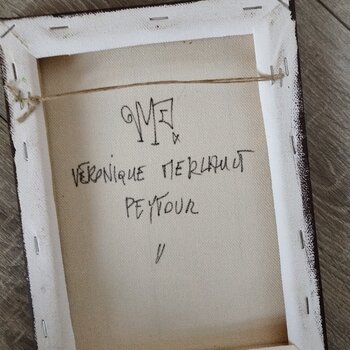 VERONIQUE MERLAULT
PEYTOUR